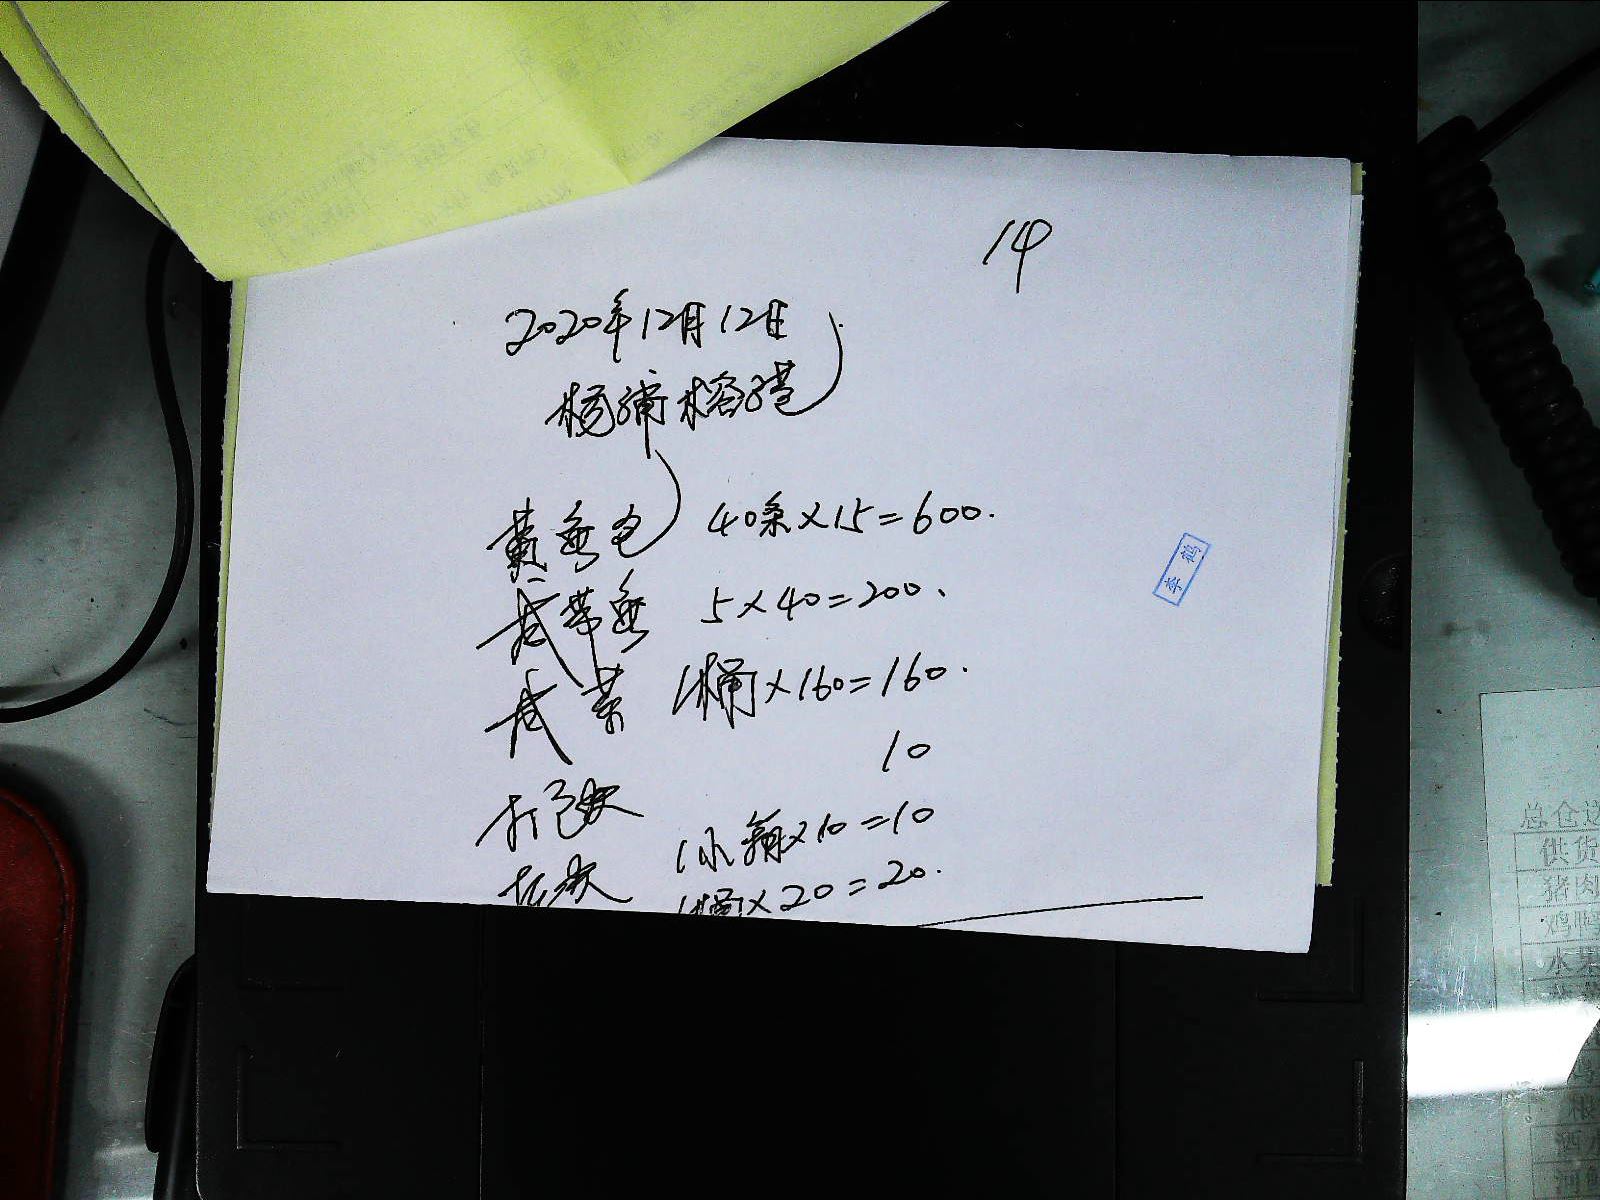 14
2020年12月12日
杨浦榕港
黄鱼鲞 40条×15=600.
咸带鱼 5×40=200.
咸菜 1桶×160=160.
10
打包费
1小箱×10=10
托费 1桶×20=20.
李鹤
总仓
供货
猪肉
鸡鸭
水果